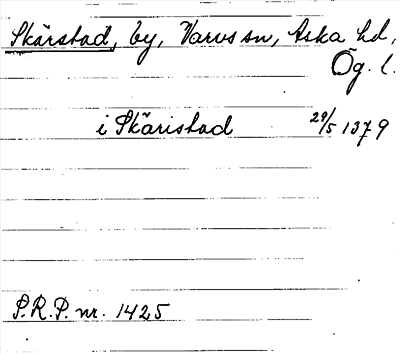 Skärstad, by, Varvs sn, Aska hd,
Ög. l.
i Skäristad 29/5 1379
S.R.P. nr. 1425